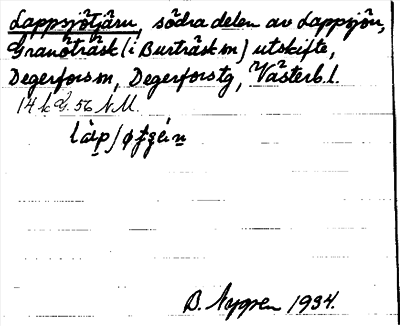 Lappsjötjärn, södra delen av Lappsjön,
Granöträsk (i Burträsk sn) utskifte,
Degerfors sn, Degerfors tg, Västerb. l.
14 k Q. 56 N.M.
B. Nygren 1934.